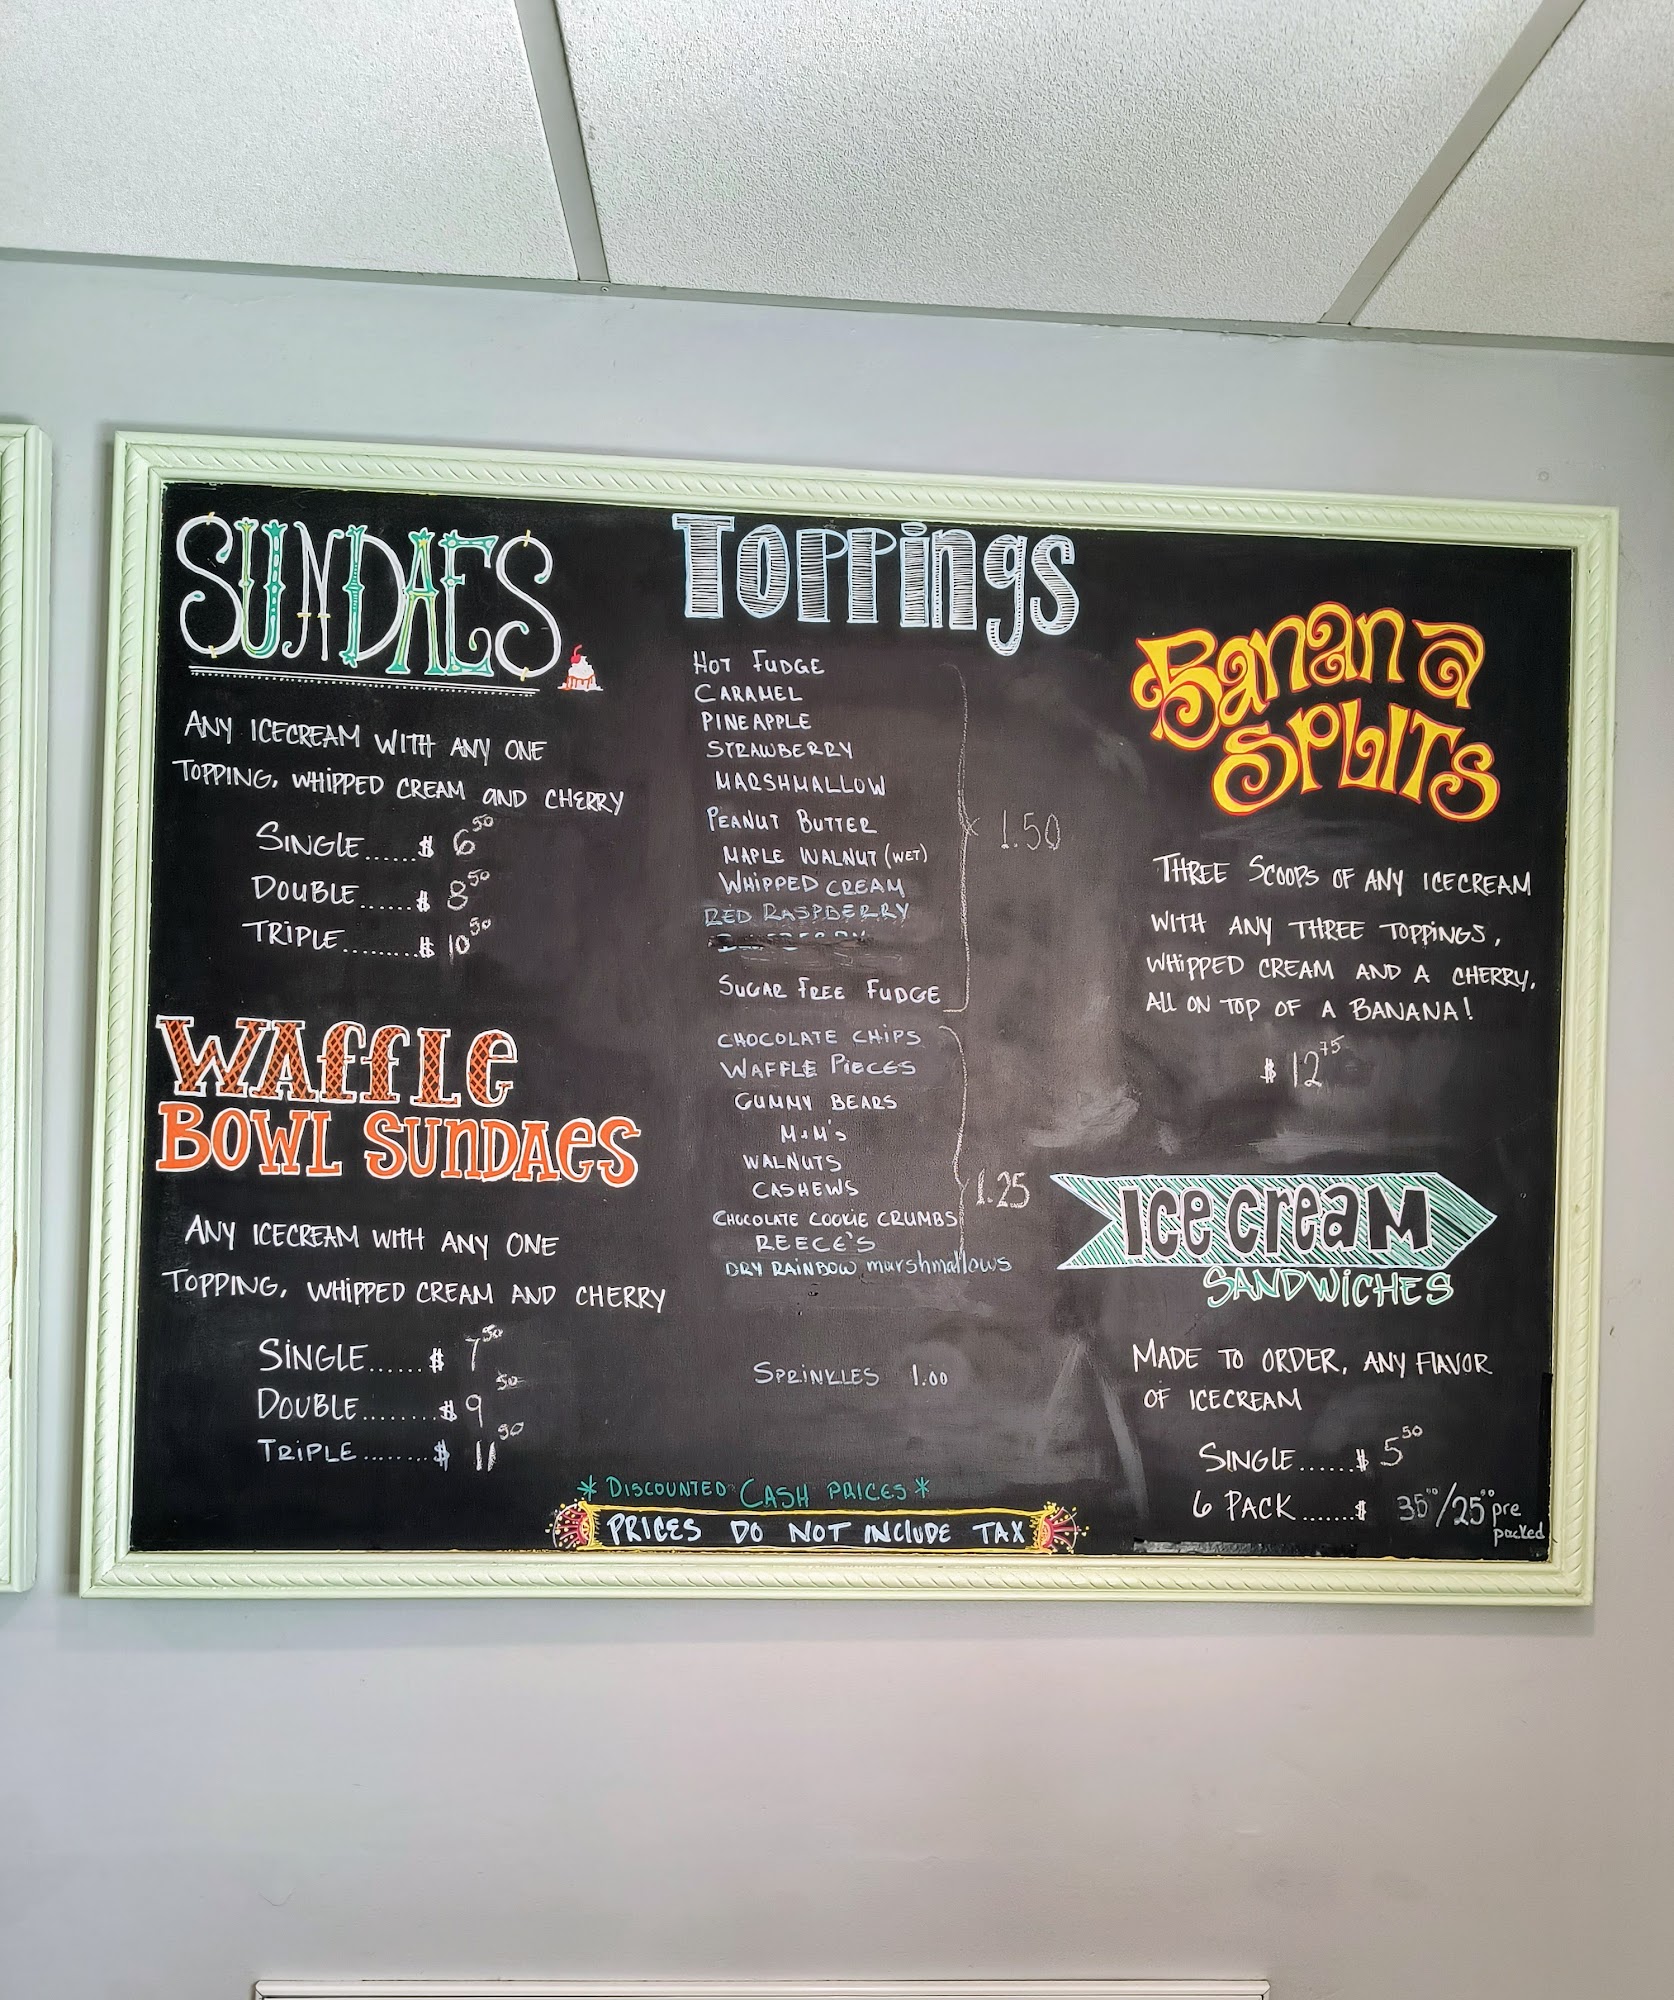 SUNDAES
ANY ICECREAM WITH ANY ONE
TOPPING, WHIPPED CREAM AND CHERRY
SINGLE......$ 6 50
DOUBLE.......$ 8 50
TRIPLE.........$ 10 50
WAFFLE
BOWL SUNDAES
ANY ICECREAM WITH ANY ONE
TOPPING, WHIPPED CREAM AND CHERRY
SINGLE......$ 7 50
DOUBLE........$ 9 50
TRIPLE........$ 11 50
TOPPINGS
HOT FUDGE
CARAMEL
PINEAPPLE
STRAWBERRY
MARSHMALLOW
PEANUT BUTTER
1.50
MAPLE WALNUT (WET)
WHIPPED CREAM
RED RASPBERRY
SUGAR FREE FUDGE
CHOCOLATE CHIPS
WAFFLE PIECES
GUMMY BEARS
M+M's
WALNUTS
CASHEWS
1.25
CHOCOLATE COOKIE CRUMBS
REECE'S
DRY RAINBOW marshmallows
SPRINKLES 1.00
*DISCOUNTED CASH PRICES*
PRICES DO NOT INCLUDE TAX
BANANA
SPLITS
THREE SCOOPS OF ANY ICECREAM
WITH ANY THREE TOPPINGS,
WHIPPED CREAM AND A CHERRY,
ALL ON TOP OF A BANANA!
$ 12 75
ICE CREAM
SANDWICHES
MADE TO ORDER, ANY FLAVOR
OF ICECREAM
SINGLE......$ 5 50
6 PACK.......$ 35 00/25 00 pre
packed